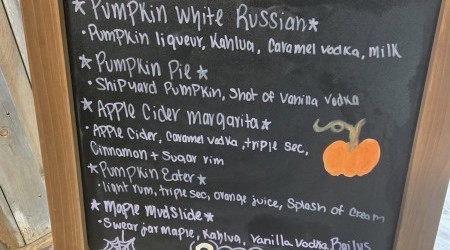 ★Pumpkin White Russian★
• Pumpkin liqueur, Kahlua, Caramel vodka, milk
★Pumpkin Pie★
• Shipyard Pumpkin, Shot of Vanilla vodka
★Apple Cider Margarita★
• Apple Cider, Caramel vodka, triple sec,
Cinnamon + Sugar rim
★Pumpkin Eater★
• light rum, triple sec, orange juice, Splash of Cream
★Maple Mudslide★
• Swear jar maple, Kahlua, Vanilla Vodka Bailys